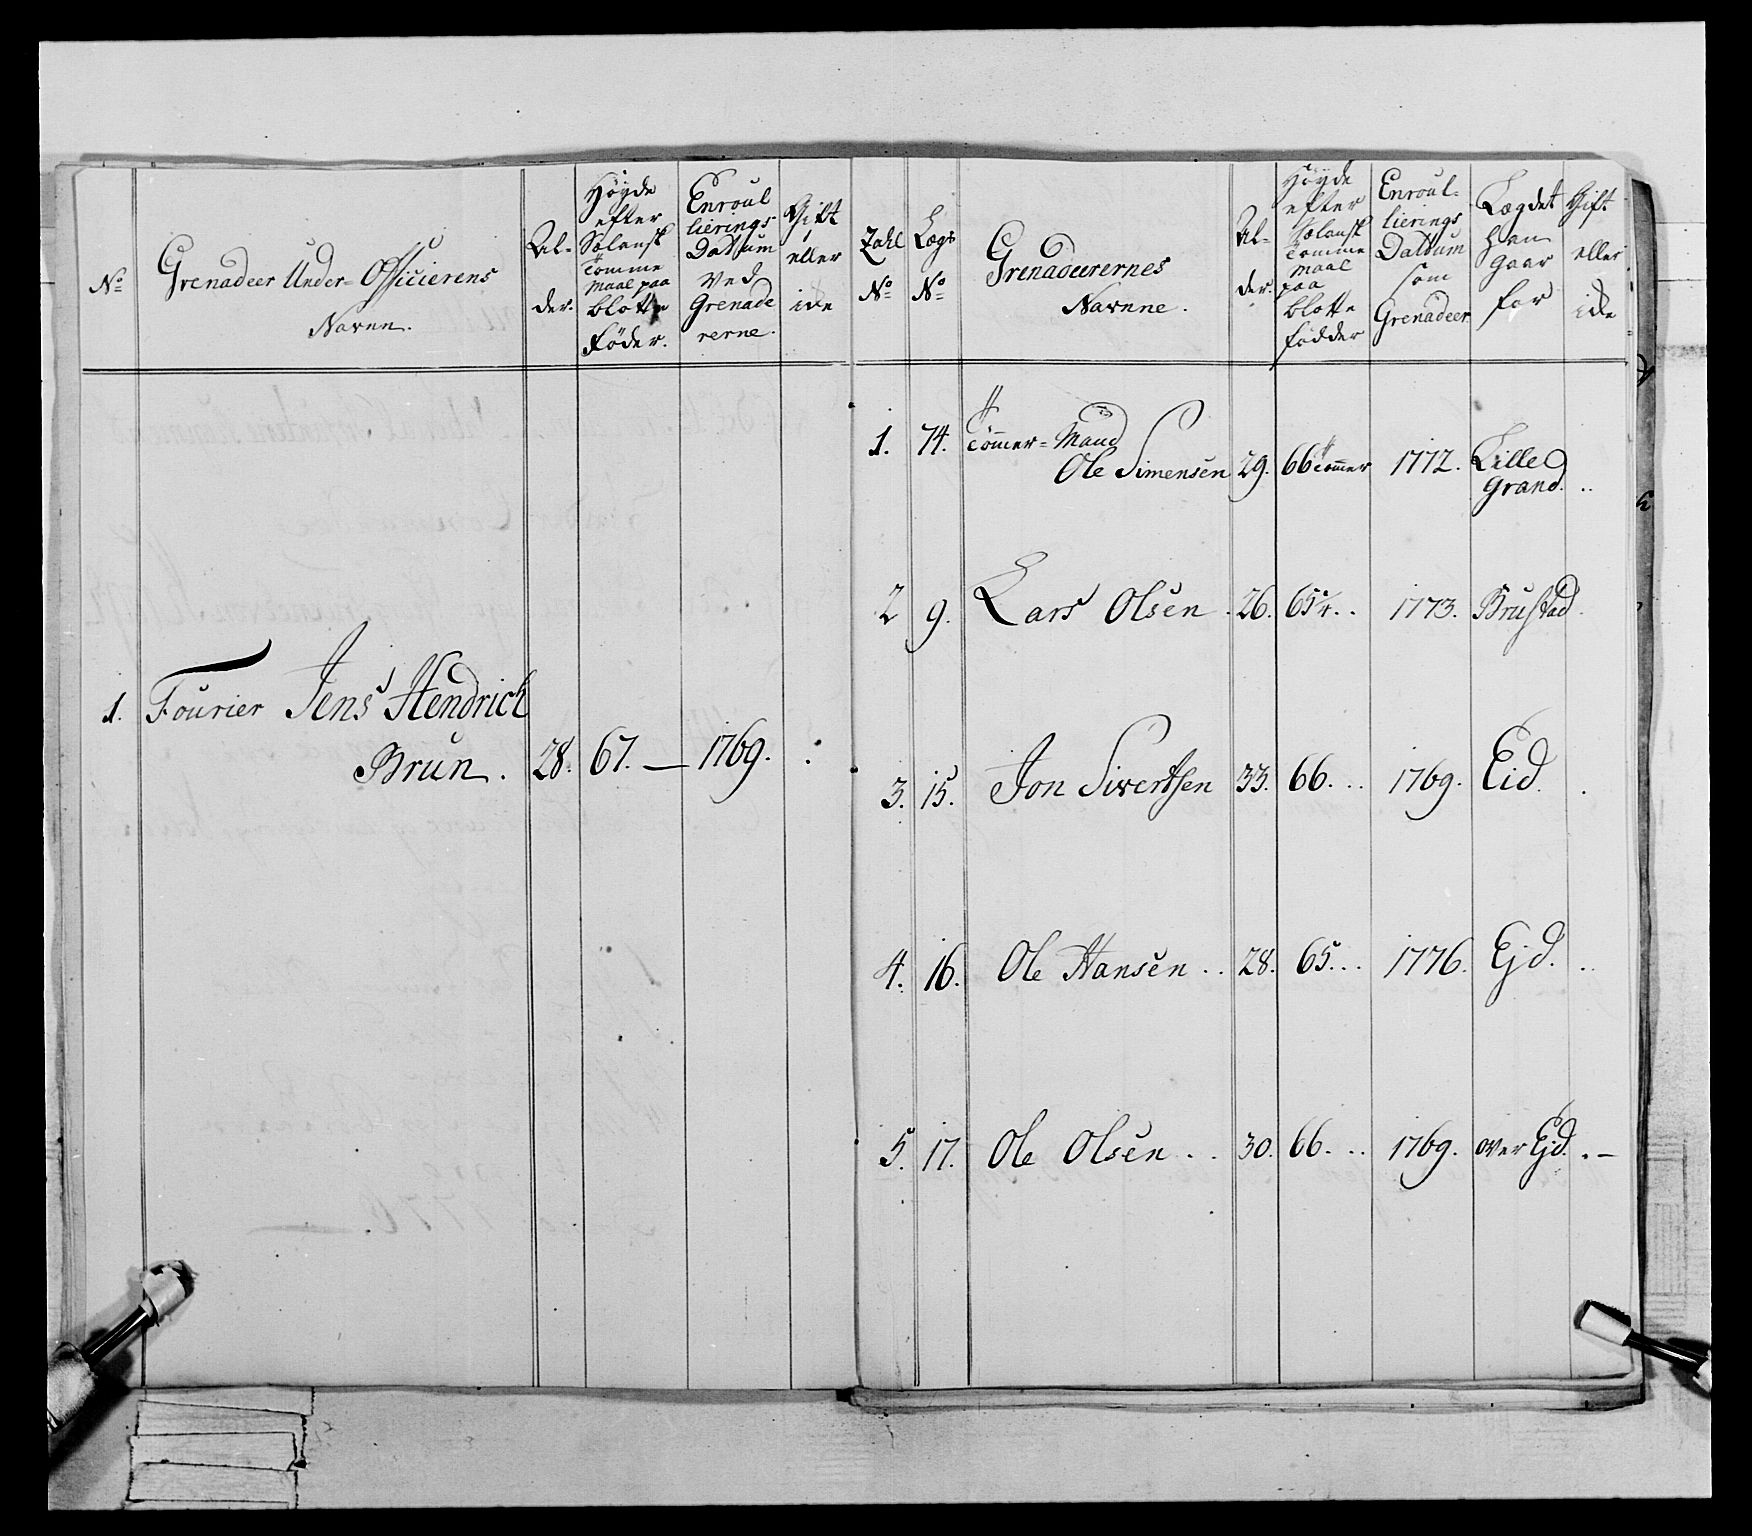 No
Grenadeer Under-Officierens
Navne.
Al-
der.
Höyde
efter
Sælansk
Tomme
Maal paa
blotte
Föder.
Enroul
lierings
Dattum
ved
Grenade
rerne.
Gift
eller
ide
1. Fourier Jens Hendrich
Brun. 28. 67. — 1769.
Zahl
No
Lægs
No
Grenadeerernes
Navnne.
Al-
der.
Höyde
efter
Sælansk
Tomme
Maal
paa
blotte
födder
Enroul-
lierings
Dattum
som
Grenadeer
Lægdet
han
gaar
for
Gift
eller
ide
1. 74. Tömer-Mand
Ole Simensen 29. 66 Tomer 1772. Lille
Grand. ..
2 9. Lars Olsen. 26. 65¼.. 1773. Brustad.
3. 15. Jon Sivertsen 33. 66... 1769. Eid. .
4. 16. Ole Hansen.. 28. 65... 1776. Ejd. ..
5. 17. Ole Olsen.. 30. 66... 1769. over Ejd. . —